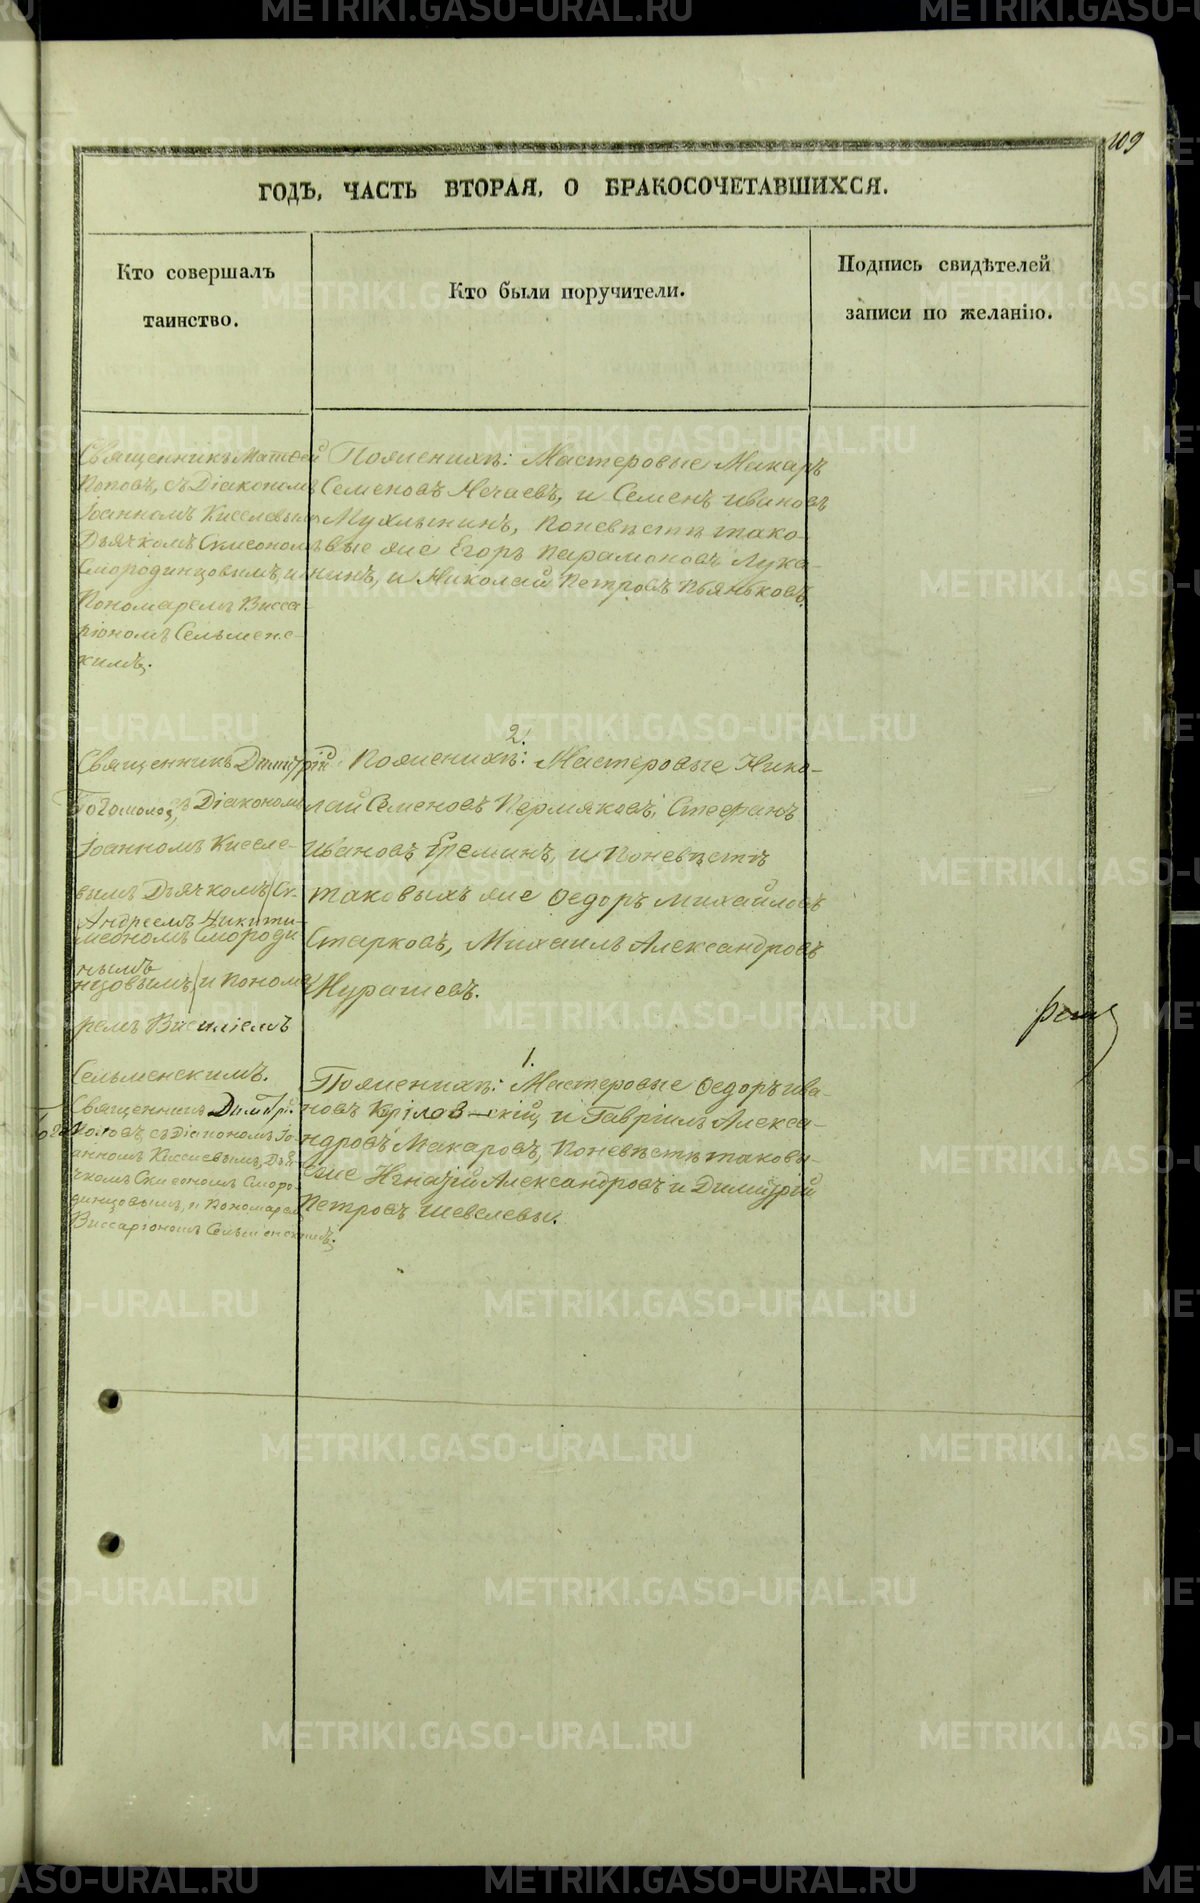 109
ГОДЪ, ЧАСТЬ ВТОРАЯ, О БРАКОСОЧЕТАВШИХСЯ.
Кто совершалъ
таинство.
Кто были поручители.
Подпись свидѣтелей
записи по желанію.
Священникъ Матѳей
Поповъ, съ Діакономъ
Іоанномъ Киселевымъ
Дьячкомъ Симеономъ
Смородинцовымъ, и
Пономаремъ Висса-
ріономъ Сельменс-
кимъ.
Поженихѣ: Мастеровые Макаръ
Семеновъ Нечаевъ, и Семенъ Ивановъ
Мухлынинъ, поневѣстѣ тако-
вые же Егоръ Парамоновъ Лука-
нинъ, и Николай Петровъ Пьянковъ.
Священникъ Димитрій
съ Діакономъ
Іоанномъ Киселе-
вымъ Дьячкомъ Си-
Андреемъ Никити-
меономъ Смороди
нымъ
нцовымъ, и Понома
ремъ
Сельменскимъ.
2.
Поженихѣ: Мастеровые Нико-
лай Семеновъ Пермяковъ, Стефанъ
Ивановъ Ереминъ, и поневѣстѣ
таковыхъ же Ѳедоръ Михайловъ
Старковъ, Михаилъ Александровъ
Священникъ Димитрі
съ Діакономъ Іо-
анномъ Киселевымъ, Дья
чкомъ Симеономъ Сморо-
динцовымъ, и Пономарем
Виссаріономъ Сельменскимъ.
1.
Поженихѣ: Мастеровые Ѳедоръ Ива-
новъ и Гавріилъ Алекса-
ндровъ Макаровъ, поневѣстѣ таковы-
еже Игнатій Александровъ и Димитрій
Петровъ Шевелевы.
METRIKI.GASO-URAL.RU